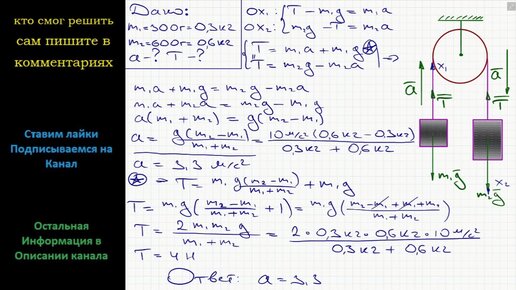 кто смог решить
сам пишите в
комментариях
Ставим лайки
Подписываемся на
Канал
Остальная
Информация в
Описании канала
Дано:
m₁=300г=0,3кг
m₂=600г=0,6кг
a-? T-?
Ox₁: { T - m₁g = m₁a
Ox₂: { m₂g - T = m₂a
{ T = m₁a + m₁g (*)
{ T = m₂g - m₂a ⇒
m₁a + m₁g = m₂g - m₂a
m₁a + m₂a = m₂g - m₁g
a(m₁ + m₂) = g(m₂ - m₁)
a = g(m₂ - m₁) / (m₁ + m₂) = 10 м/с² (0,6кг - 0,3кг) / (0,3кг + 0,6кг)
a = 3,3 м/с²
(*) ⇒ T = m₁ g(m₂ - m₁) / (m₁ + m₂) + m₁g
T = m₁g ( (m₂ - m₁) / (m₁ + m₂) + 1 ) = m₁g ( (m₂ - m₁ + m₁ + m₂) / (m₁ + m₂) )
T = 2 m₁ m₂ g / (m₁ + m₂) = 2 · 0,3кг · 0,6кг · 10 м/с² / (0,3кг + 0,6кг)
T = 4 Н
Ответ: a = 3,3
x₁
a
T
m₁g
T
a
m₂g
x₂